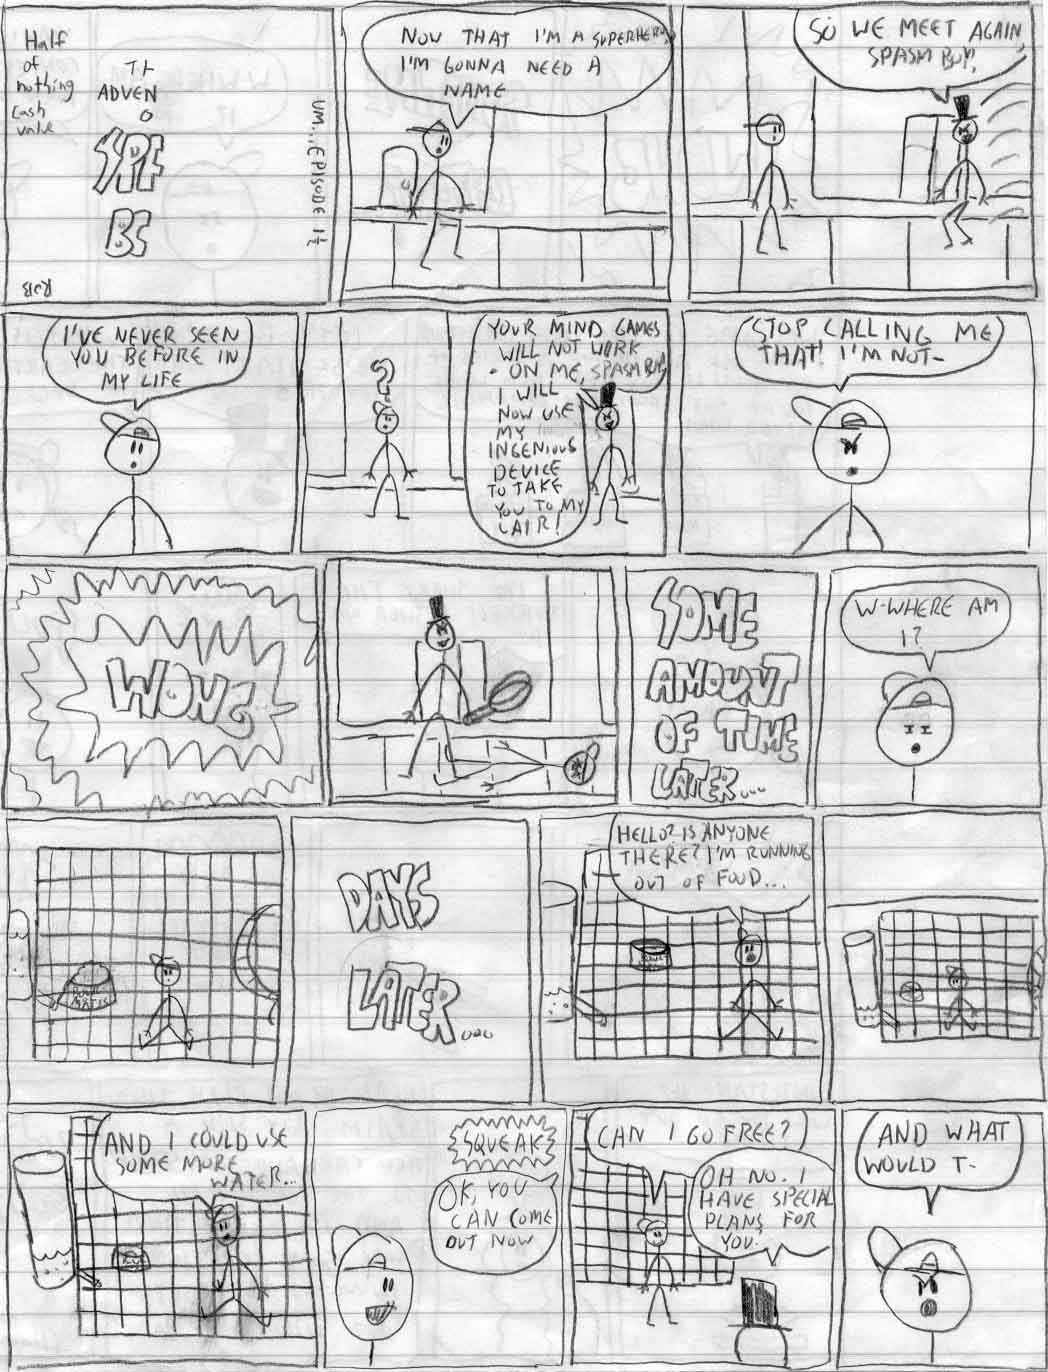 Half
of
nothing
Cash
value
TH
ADVEN
O
SPE
BC
UM...EPISODE 1½
ROB
NOW THAT I'M A SUPERHERO,
I'M GONNA NEED A
NAME
SO WE MEET AGAIN,
SPASM BOY!
I'VE NEVER SEEN
YOU BEFORE IN
MY LIFE
?
YOUR MIND GAMES
WILL NOT WORK
ON ME, SPASM BOY!
I WILL
NOW USE
MY
INGENIOUS
DEVICE
TO TAKE
YOU TO MY
LAIR!
STOP CALLING ME
THAT! I'M NOT-
WONG
SOME
AMOUNT
OF TIME
LATER...
W-WHERE AM
I?
DAYS
LATER...
HELLO? IS ANYONE
THERE? I'M RUNNING
OUT OF FOOD...
AND I COULD USE
SOME MORE
WATER...
SQUEAK
OK, YOU
CAN COME
OUT NOW
CAN I GO FREE?
OH NO. I
HAVE SPECIAL
PLANS FOR
YOU.
AND WHAT
WOULD T-